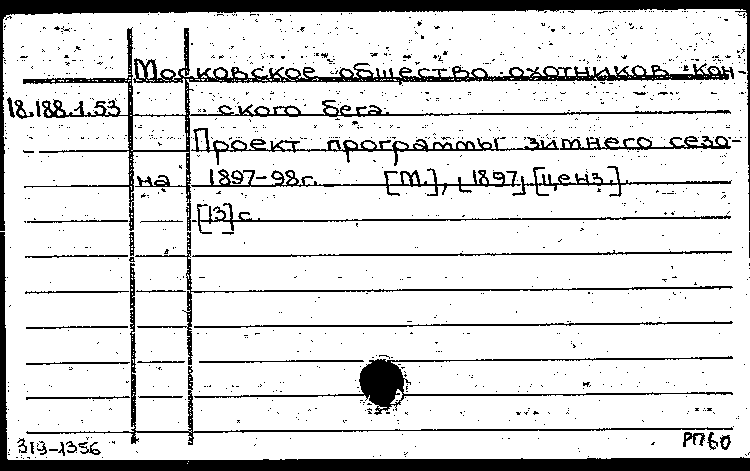 Московское общество охотников кон-
18.188.1.53 ского бега.
Проект программы зимнего сезо-
на 1897-98г. [М.], [1897] [ценз.].
[13] с.
319-1356 РП60